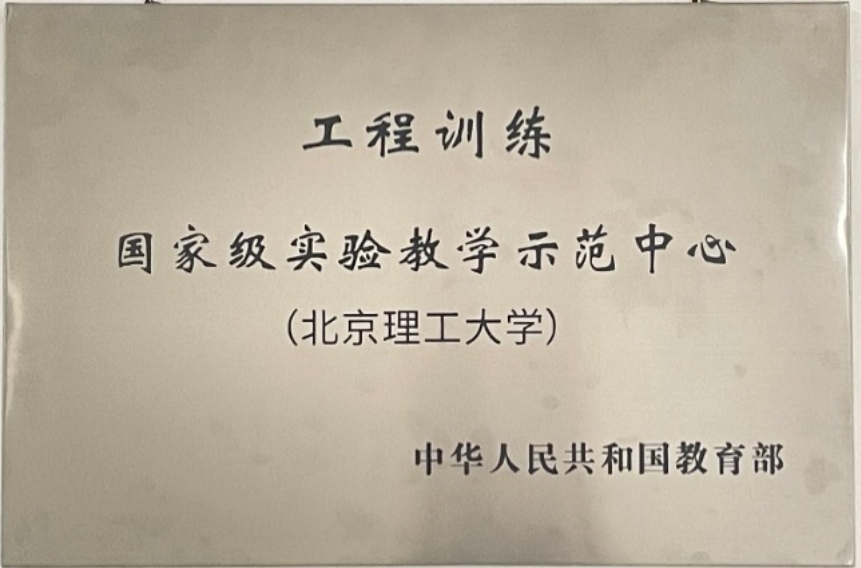 工程训练
国家级实验教学示范中心
（北京理工大学）
中华人民共和国教育部